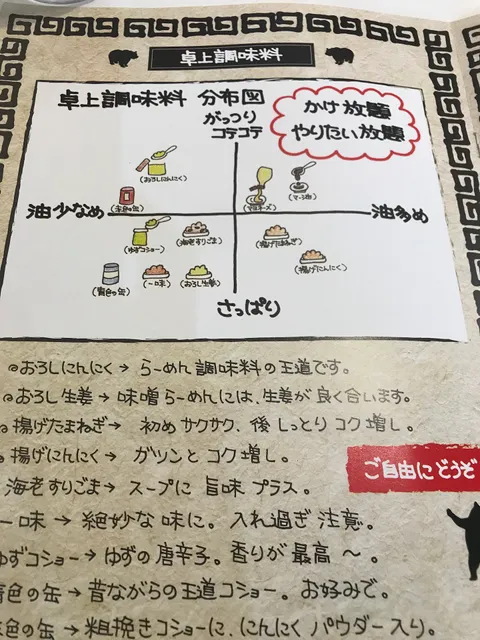 卓上調味料
卓上調味料 分布図
かけ放題
やりたい放題
がっつり
コテコテ
(おろしにんにく)
(赤色の缶)
(マヨネーズ)
(マー油)
油少なめ
油多め
(ゆずコショー)
(海老すりごま)
(揚げたまねぎ)
(揚げにんにく)
(青色の缶)
(一味)
(おろし生姜)
さっぱり
◎おろしにんにく→ らーめん調味料の王道です。
おろし生姜→ 味噌らーめんには、生姜が良く合います。
揚げたまねぎ→ 初めサクサク、後しっとりコク増し。
揚げにんにく→ ガツンとコク増し。
ご自由にどうぞ
海老すりごま→ スープに旨味プラス。
一味→ 絶妙な味に。入れ過ぎ注意。
ゆずコショー→ ゆずの唐辛子。香りが最高〜。
青色の缶→ 昔ながらの王道コショー。お好みで。
色の缶→ 粗挽きコショーに、にんにくパウダー入り。